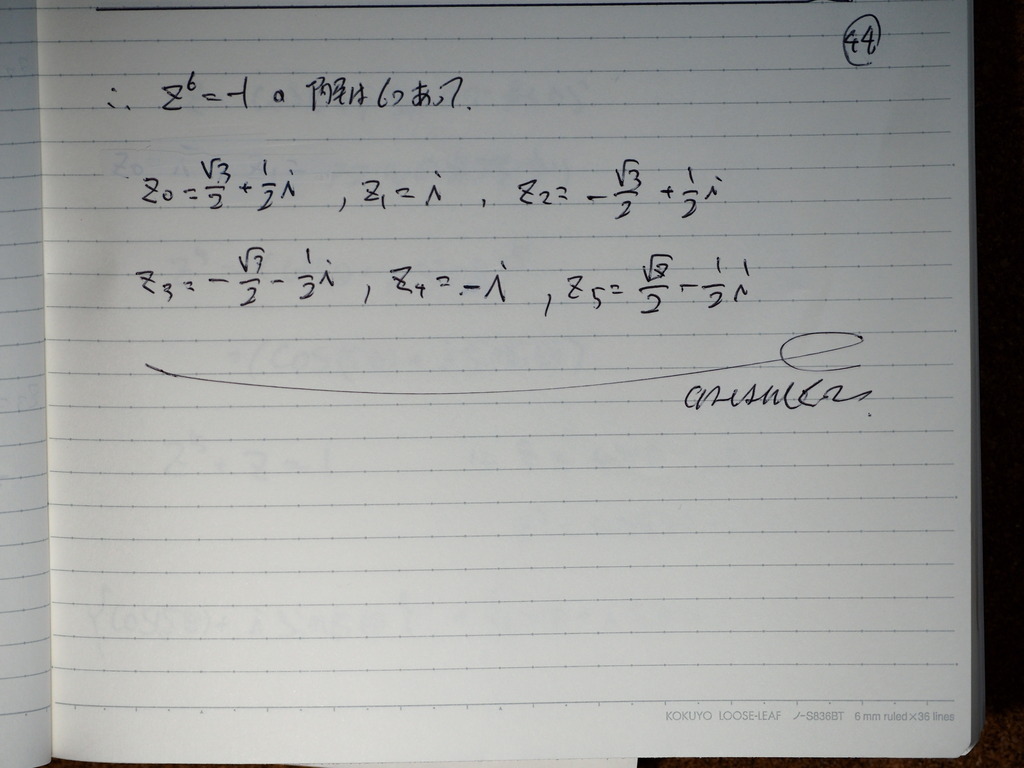 44
∴ z⁶ = -1 の 解は6つあって.
z₀ = √3/2 + 1/2 i , z₁ = i , z₂ = -√3/2 + 1/2 i
z₃ = -√3/2 - 1/2 i , z₄ = -i , z₅ = √3/2 - 1/2 i
answer
KOKUYO LOOSE-LEAF ノ-S836BT 6 mm ruled×36 lines